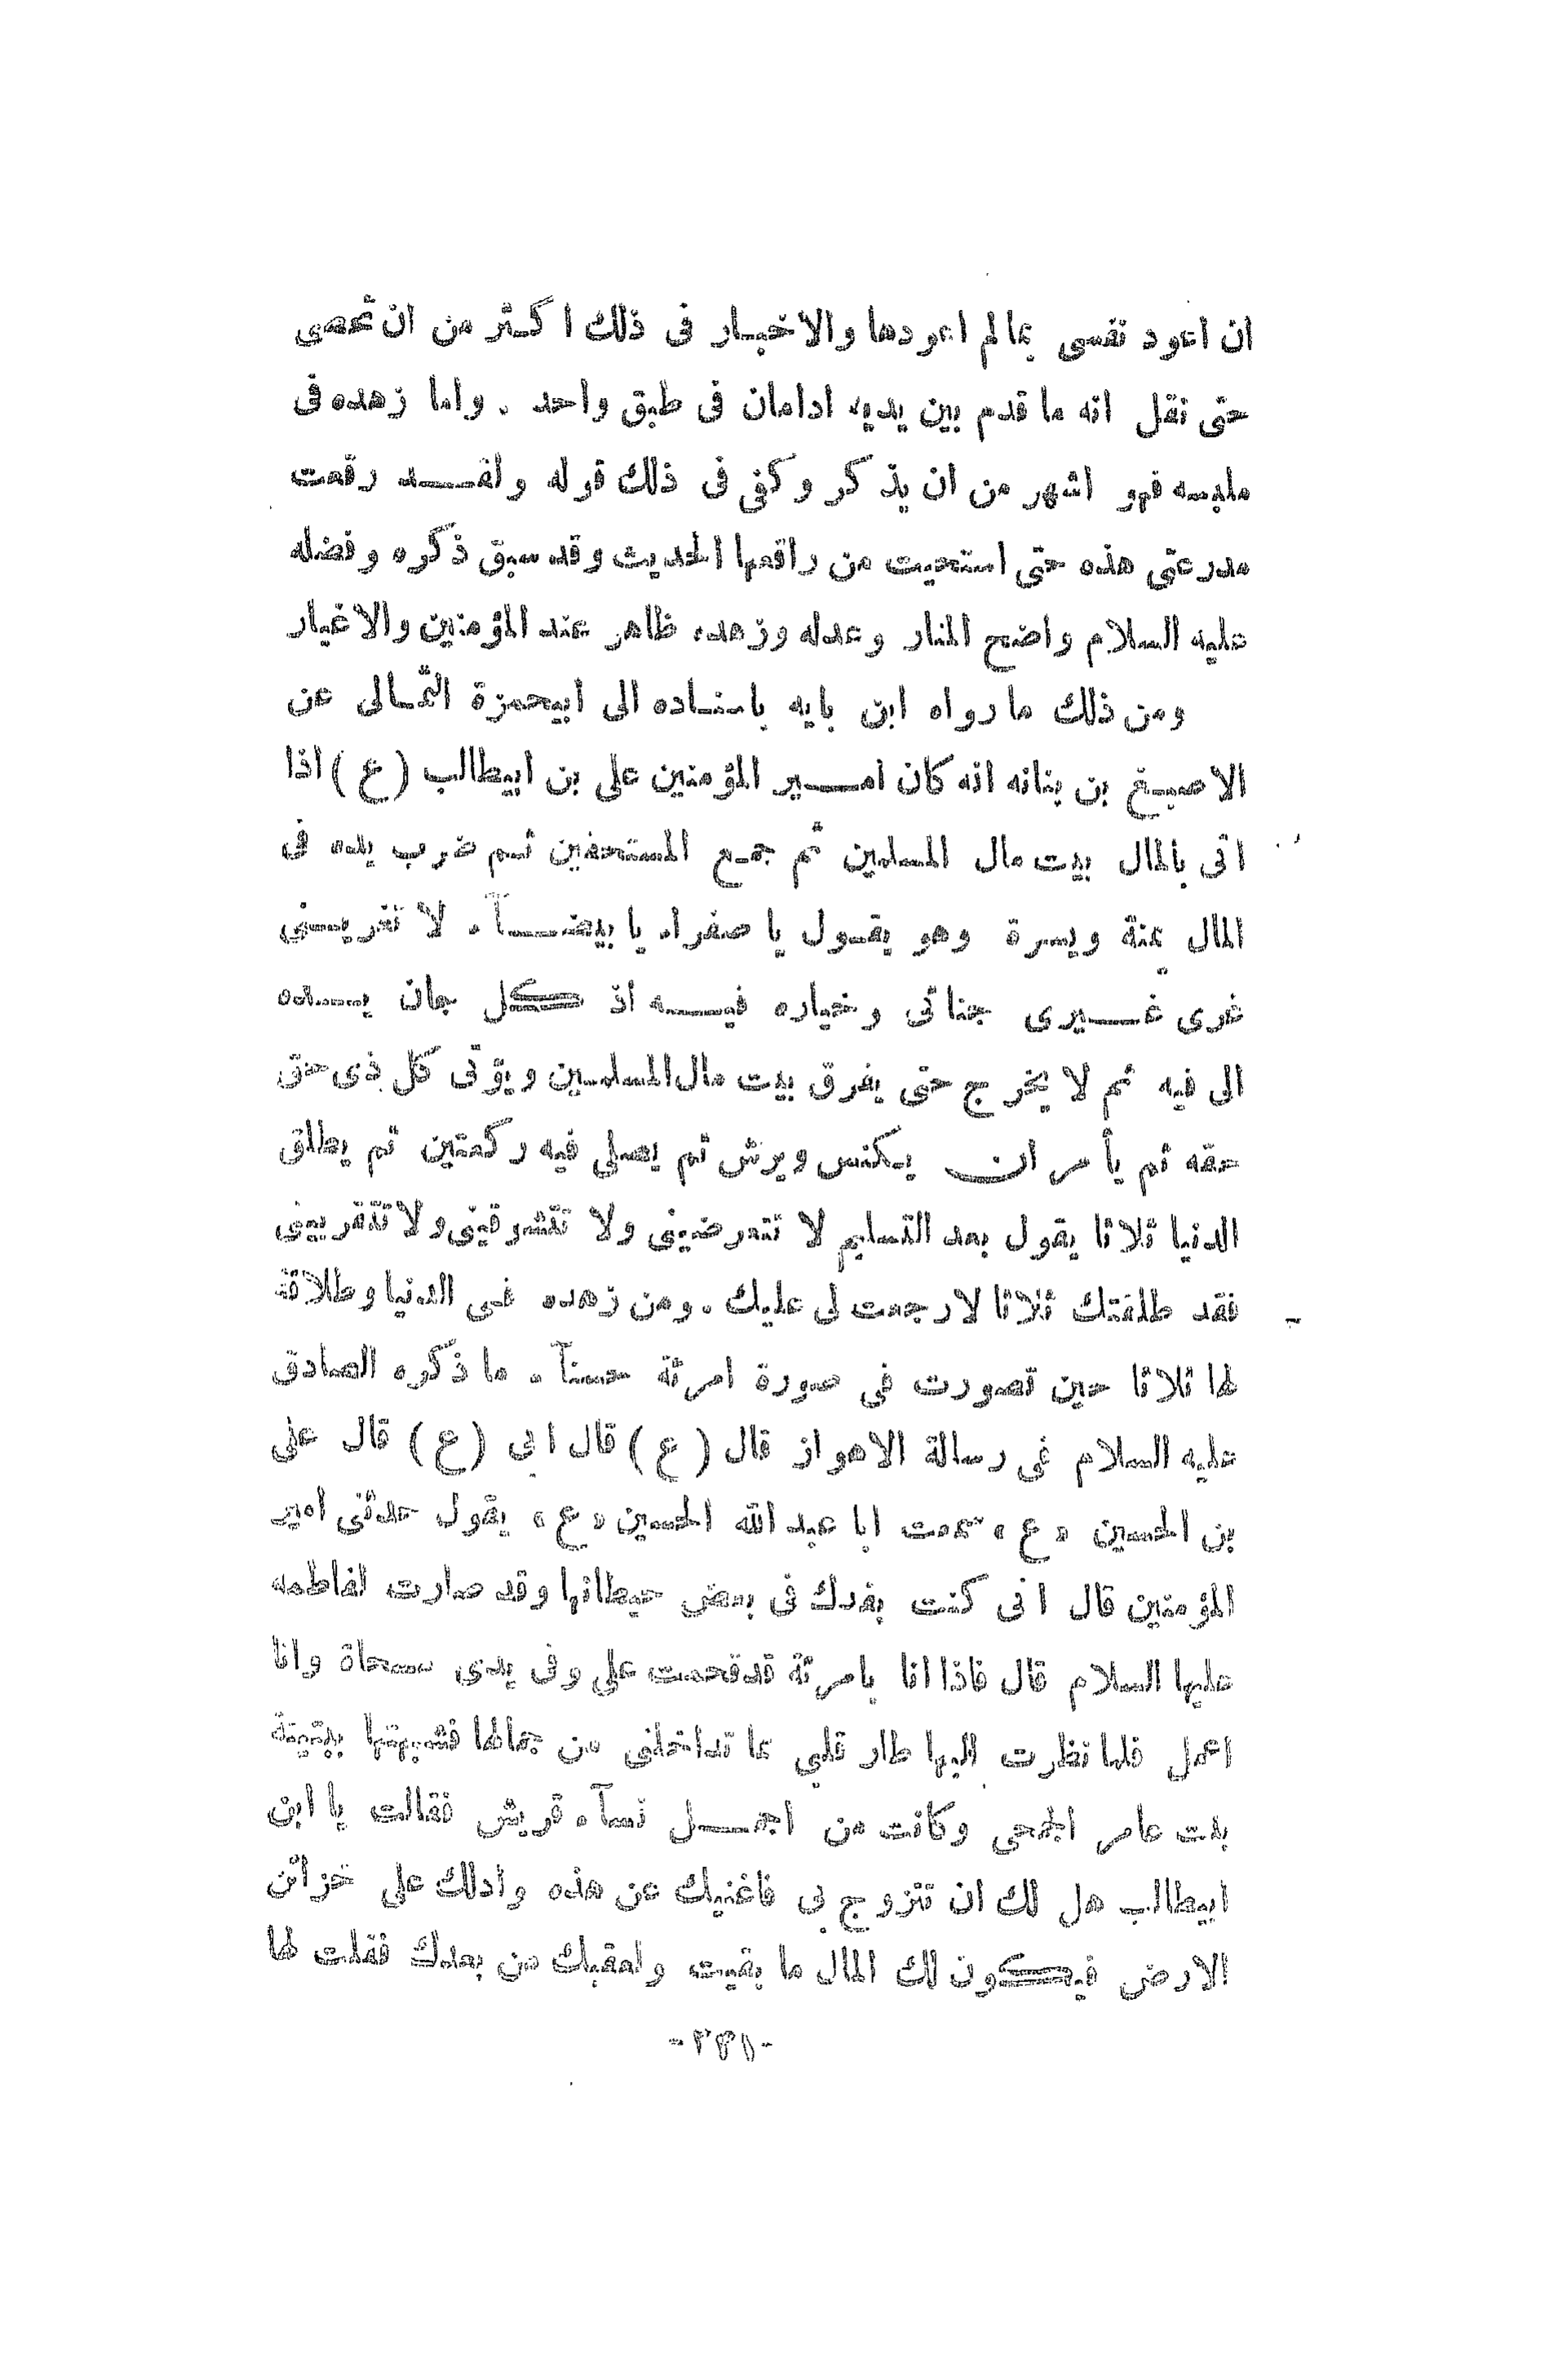 ان اعود نفسى بمالم اعودها والاخبار فى ذلك اكثر من ان تحصى
حتى نقل انه ما قدم بين يديه ادامان فى طبق واحد . واما زهده فى
ملبسه فهو اشهر من ان يذكر وكفى فى ذلك قوله ولقد رقعت
مدرعتى هذه حتى استحيت من راقعها الحديث وقد سبق ذكره وفضله
عليه السلام واضح المنار وعدله وزهده ظاهر عند المؤمنين والاغيار
ومن ذلك ما رواه ابن بايه باسناده الى ابيحمزة الثمالى عن
الاصبغ بن بنانه انه كان امير المؤمنين على بن ابيطالب (ع) اذا
اتى بالمال بيت مال المسلمين ثم جمع المستحقين ثم ضرب يده فى
المال يمنة ويسرة وهو يقول يا صفراء يا بيضآء لا تغرينى
غرى غيرى جناتى وخياره فيه اذ كل جان يده
الى فيه ثم لا يخرج حتى يفرق بيت مال المسلمين ويؤتى كل ذى حق
حقه ثم يأمر ان يكنس ويرش ثم يصلى فيه ركعتين ثم يطلق
الدنيا ثلاثا يقول بعد التسليم لا تتعرضينى ولا تتشوقينى ولا تتقربينى
فقد طلقتك ثلاثا لارجعت لى عليك . ومن زهده فى الدنيا وطلاقة
لها ثلاثا حين تصورت فى صورة امرئة حسنآء ما ذكره الصادق
عليه السلام فى رسالة الاهواز قال (ع) قال ابى (ع) قال على
بن الحسين «ع» سمعت ابا عبد الله الحسين «ع» يقول حدثنى امير
المؤمنين قال انى كنت بفدك فى بعض حيطانها وقد صارت لفاطمه
عليها السلام قال فاذا انا بامرئة قد قحمت على وفى يدى مسحاة وانا
اعمل فلما نظرت اليها طار قلبى مما تداخلنى من جمالها فشبهتها ببثينة
بنت عامر الجمحى وكانت من اجمل نسآء قريش فقالت يا ابن
ابيطالب هل لك ان تتزوج بى فاغنيك عن هذه وادلك على خزائن
الارض فيكون لك المال ما بقيت ولعقبك من بعدك فقلت لها